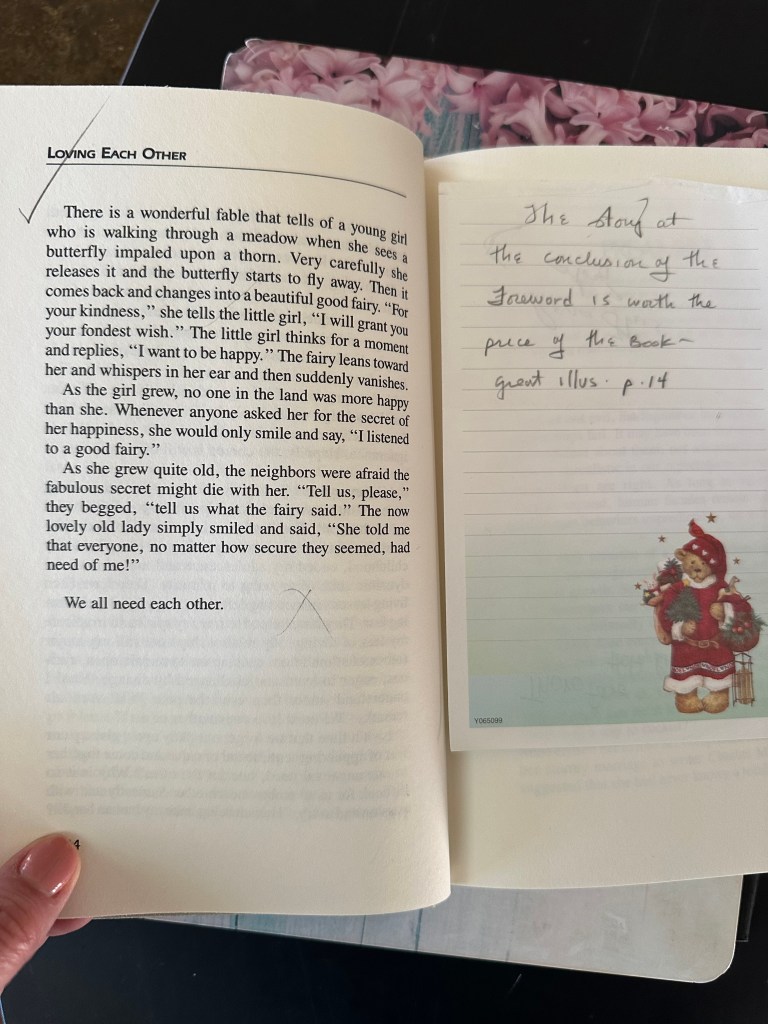 LOVING EACH OTHER
There is a wonderful fable that tells of a young girl
who is walking through a meadow when she sees a
butterfly impaled upon a thorn. Very carefully she
releases it and the butterfly starts to fly away. Then it
comes back and changes into a beautiful good fairy. “For
your kindness,” she tells the little girl, “I will grant you
your fondest wish.” The little girl thinks for a moment
and replies, “I want to be happy.” The fairy leans toward
her and whispers in her ear and then suddenly vanishes.
As the girl grew, no one in the land was more happy
than she. Whenever anyone asked her for the secret of
her happiness, she would only smile and say, “I listened
to a good fairy.”
As she grew quite old, the neighbors were afraid the
fabulous secret might die with her. “Tell us, please,”
they begged, “tell us what the fairy said.” The now
lovely old lady simply smiled and said, “She told me
that everyone, no matter how secure they seemed, had
need of me!”
We all need each other.
4
The story at
the conclusion of the
Foreword is worth the
price of the Book~
great illus. p.14
Y065099